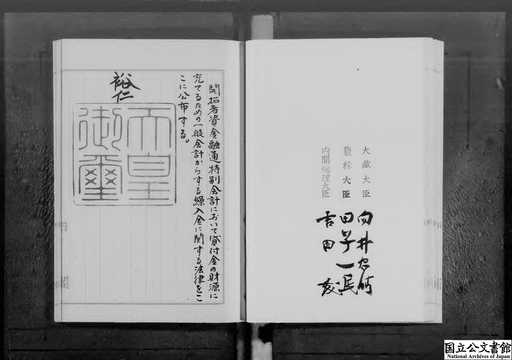 大蔵大臣 向井忠晴
農林大臣 田子一民
内閣総理大臣 吉田茂
開拓者資金融通特別会計において貸付金の財源に
充てるための一般会計からする繰入金に関する法律をこ
こに公布する。
裕仁
天皇
御璽
内閣
国立公文書館
National Archives of Japan